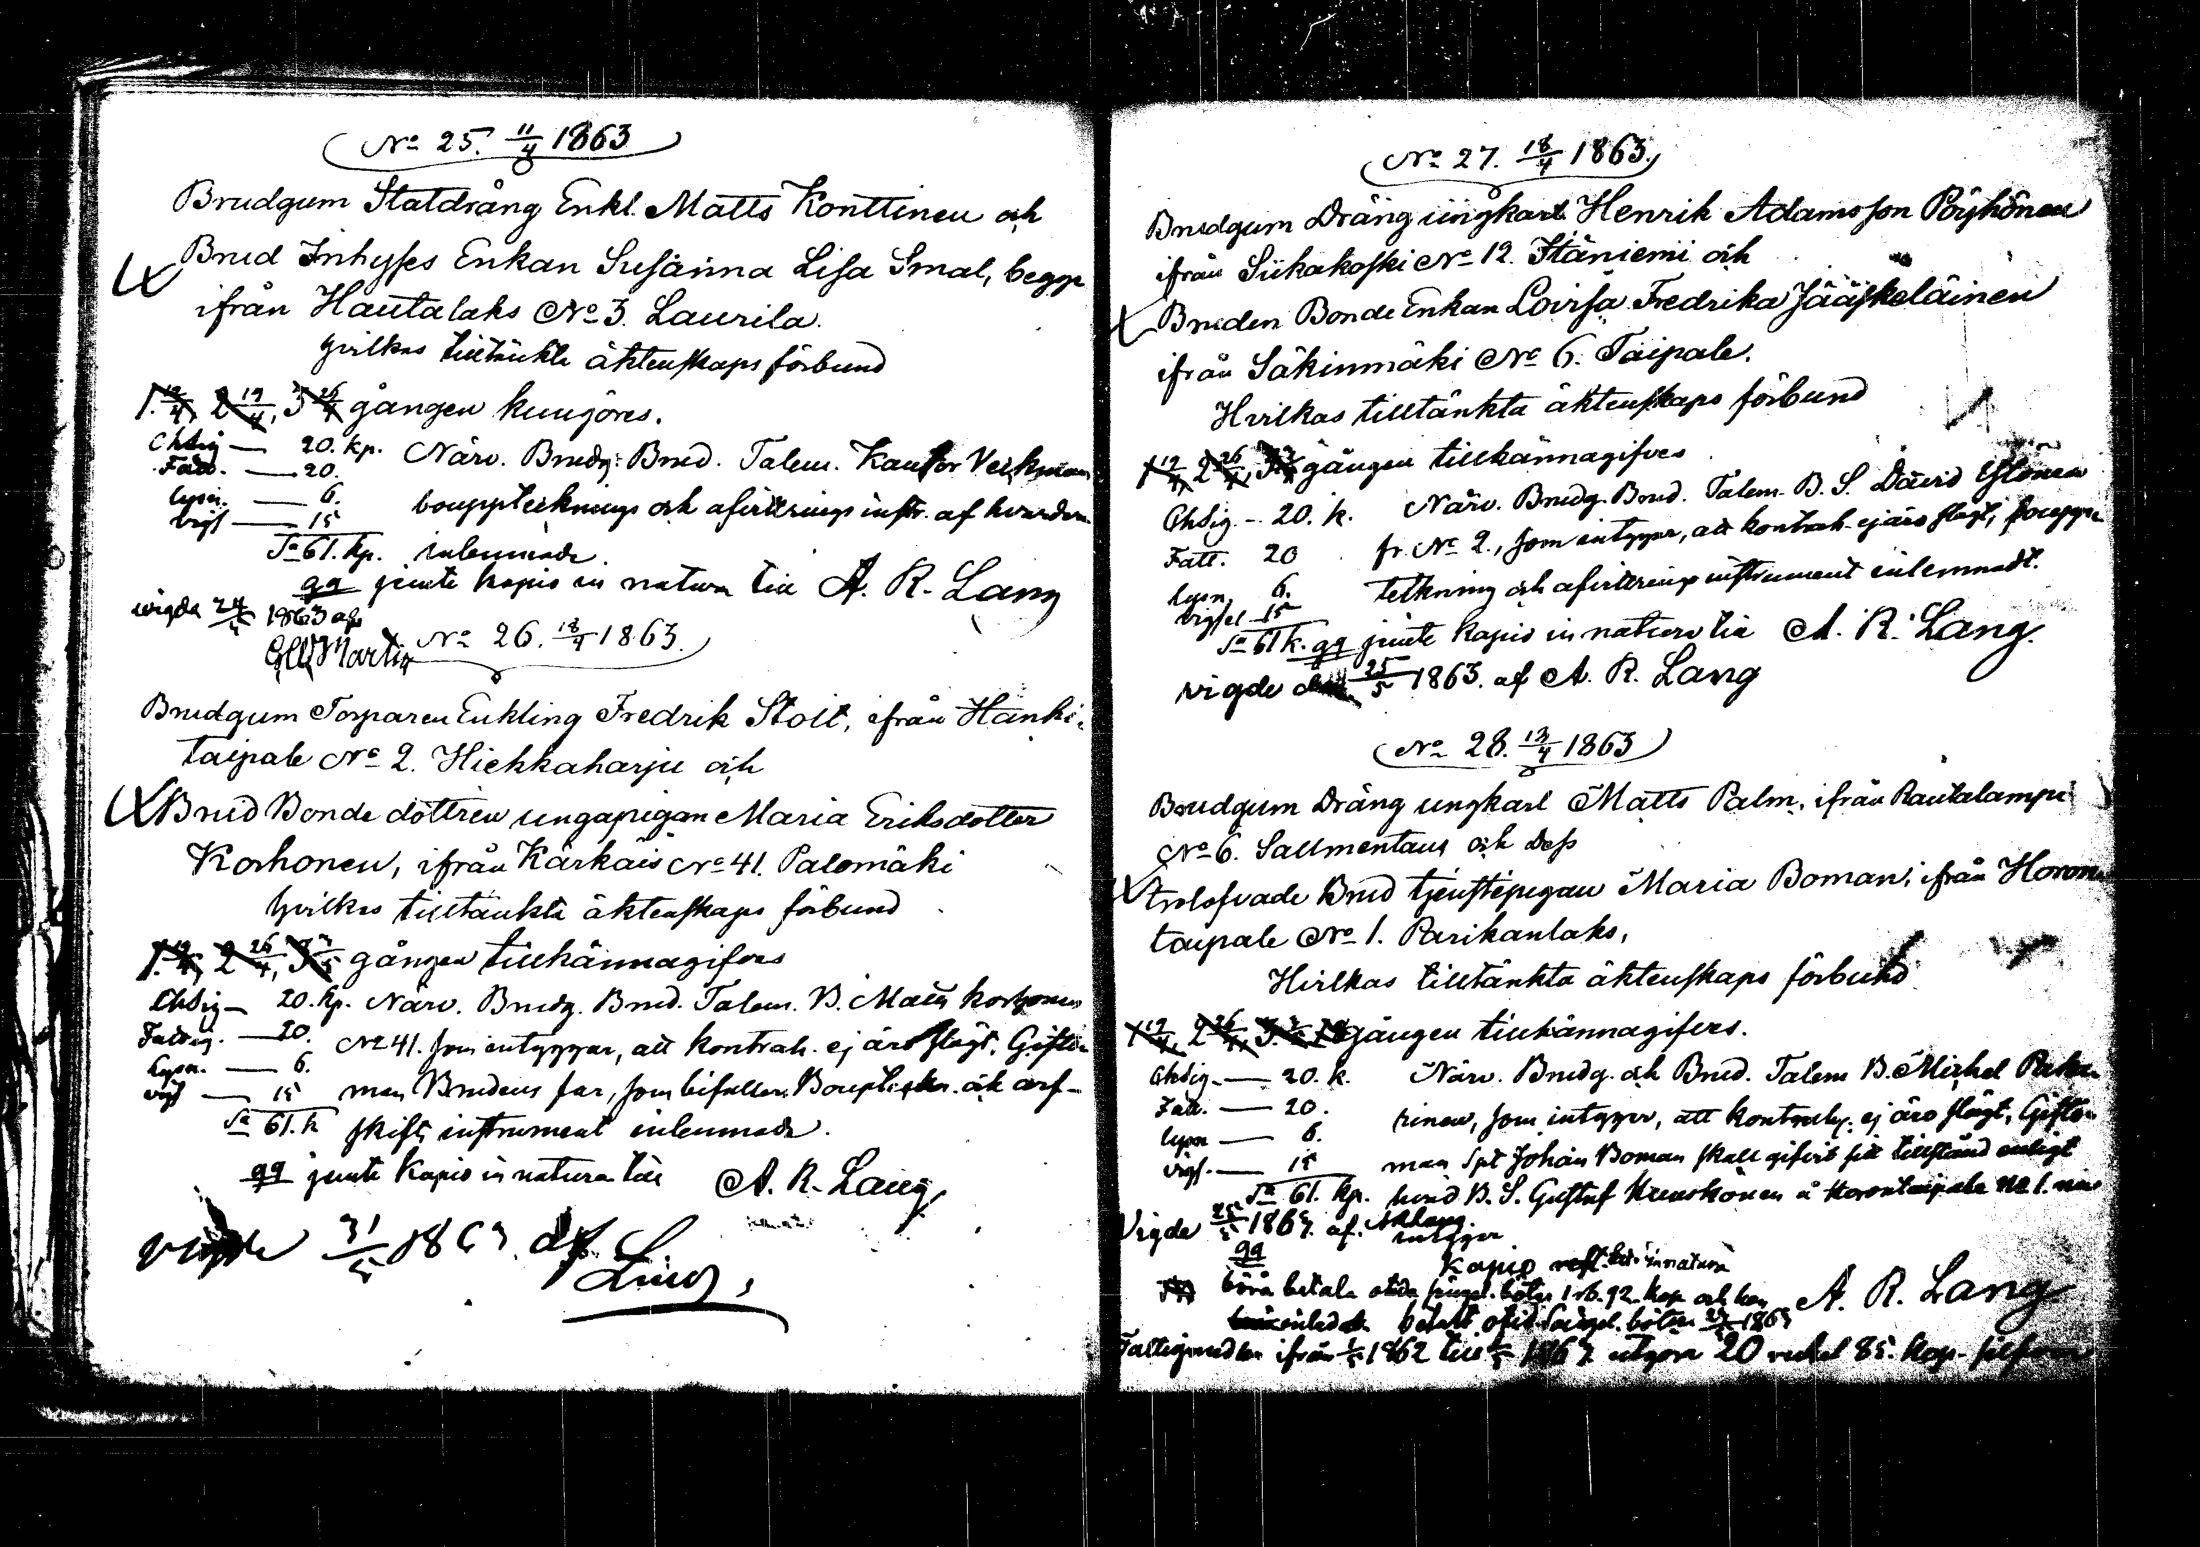 No 25. 11/4 1863
Brudgum Statdräng Enkl. Matts Konttinen och
Brud Inhyses Enkan Susanna Lisa Smal, begge
ifrån Hautalaks No 3. Laurila.
hvilkas tilltänkta äktenskaps förbund
1. 12/4, 2 19/4, 3 26/4 gången kungöres.
Ekläs — 20. kp. Närv. Brudg. Brud. Talem. Kantor
Fatt. — 20. bouppteknings och afvittrings instr. af
lysn. — 6.
vigs — 15
Sa 61. kp. inlemnade.
qq jemte kapio in natura till A. R. Lang
wigda 24/5 1863 af
Martin
No 26. 18/4 1863.
Brudgum Torparen Enkling Fredrik Stolt, ifrån Hanki-
taipale No 2. Hiekkaharju och
Brud Bonde dottren ungapigan Maria Eriksdotter
Korhonen, ifrån Kärkäis No 41. Palomäki
hvilkas tilltänkta äktenskaps förbund
1. 19/4, 2 26/4, 3 3/5 gången tillkännagifves
20. kp. Närv. Brudg. Brud. Talem. B. Matts Korhonen
Fattig. — 20. No 41. som intygar, att kontrah. ej äro slägt. Gifto-
Lysn. — 6.
vigs — 15 man Brudens far, som bifaller. och arf-
Sa 61. k skifts instrument inlemnade.
qq jemte Kapio in natura till A. R. Lang
vigde 31/5 1863. af
No 27. 18/4 1863.
Brudgum Dräng ungkarl Henrik Adamsson Pöyhönen
ifrån Siikakoski No 12. Itäniemi och
Bruden Bonde Enkan Lovisa Fredrika Jääskeläinen
ifrån Säkinmäki No 6. Taipale.
Hvilkas tilltänkta äktenskaps förbund
1 19/4, 2 26/4, 3 3/5 gången tillkännagifves
20. k. Närv. Brudg. Brud. Talem. B. S. David Ylönen
Fatt. 20 fr. No 2., som intygar, att kontrah. ej äro slägt, boupp-
lysn. 6. tekning och afvittrings instrument inlemnadt.
vigsel 15
Sa 61 k. qq jemte kapio in natura till A. R. Lang.
vigde 25/5 1863. af A. R. Lang
No 28. 13/4 1863
Brudgum Dräng ungkarl Matts Palm, ifrån Rautalampi
No 6. Sallmentaus och Dess
trolofvade Brud tjenstepigan Maria Boman, ifrån Horon-
taipale No 1. Parikanlaks,
Hvilkas tilltänkta äktenskaps förbund
1 19/4, 2 26/4, 3. 3/5 gången tillkännagifves.
20. k. Närv. Brudg. och Brud. Talem B. Mickel
Fatt. — 20. rinen, som intygar, att kontrah. ej äro slägt, Gifto-
lysn — 6.
vigs. — 15 man Spt Johan Boman skall gifvit sitt tillstånd enligt
Sa 61. kp. B. S. Gustaf å Horontaipale No 1.
Vigde 25/5 1863. af. A R Lang.
intygar
qq
Kapio in natura
böra betala böter 1 rb. 92. kop och
betalt böter 1863 A. R. Lang
ifrån 1862 till 1863 utgöra 20 rubel 85. kop. silfver